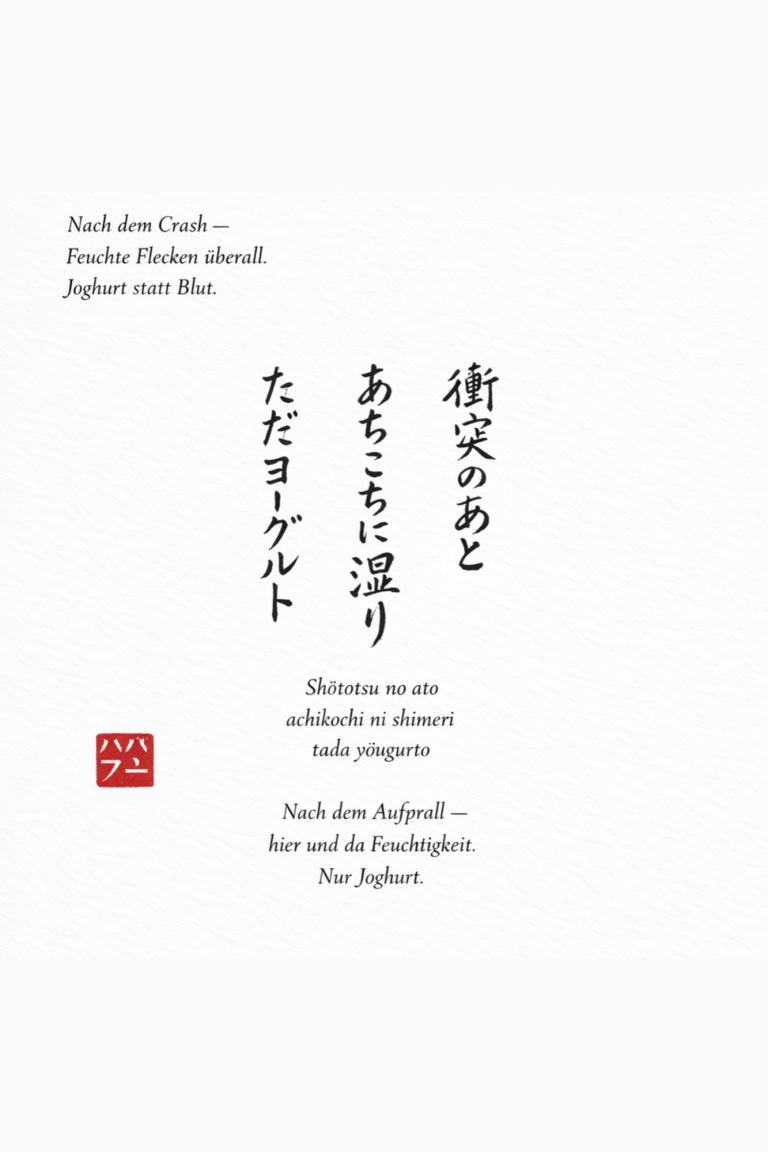 Nach dem Crash —
Feuchte Flecken überall.
Joghurt statt Blut.
衝突のあと
あちこちに湿り
ただヨーグルト
Shötotsu no ato
achikochi ni shimeri
tada yöugurto
ハバ
フー
Nach dem Aufprall —
hier und da Feuchtigkeit.
Nur Joghurt.